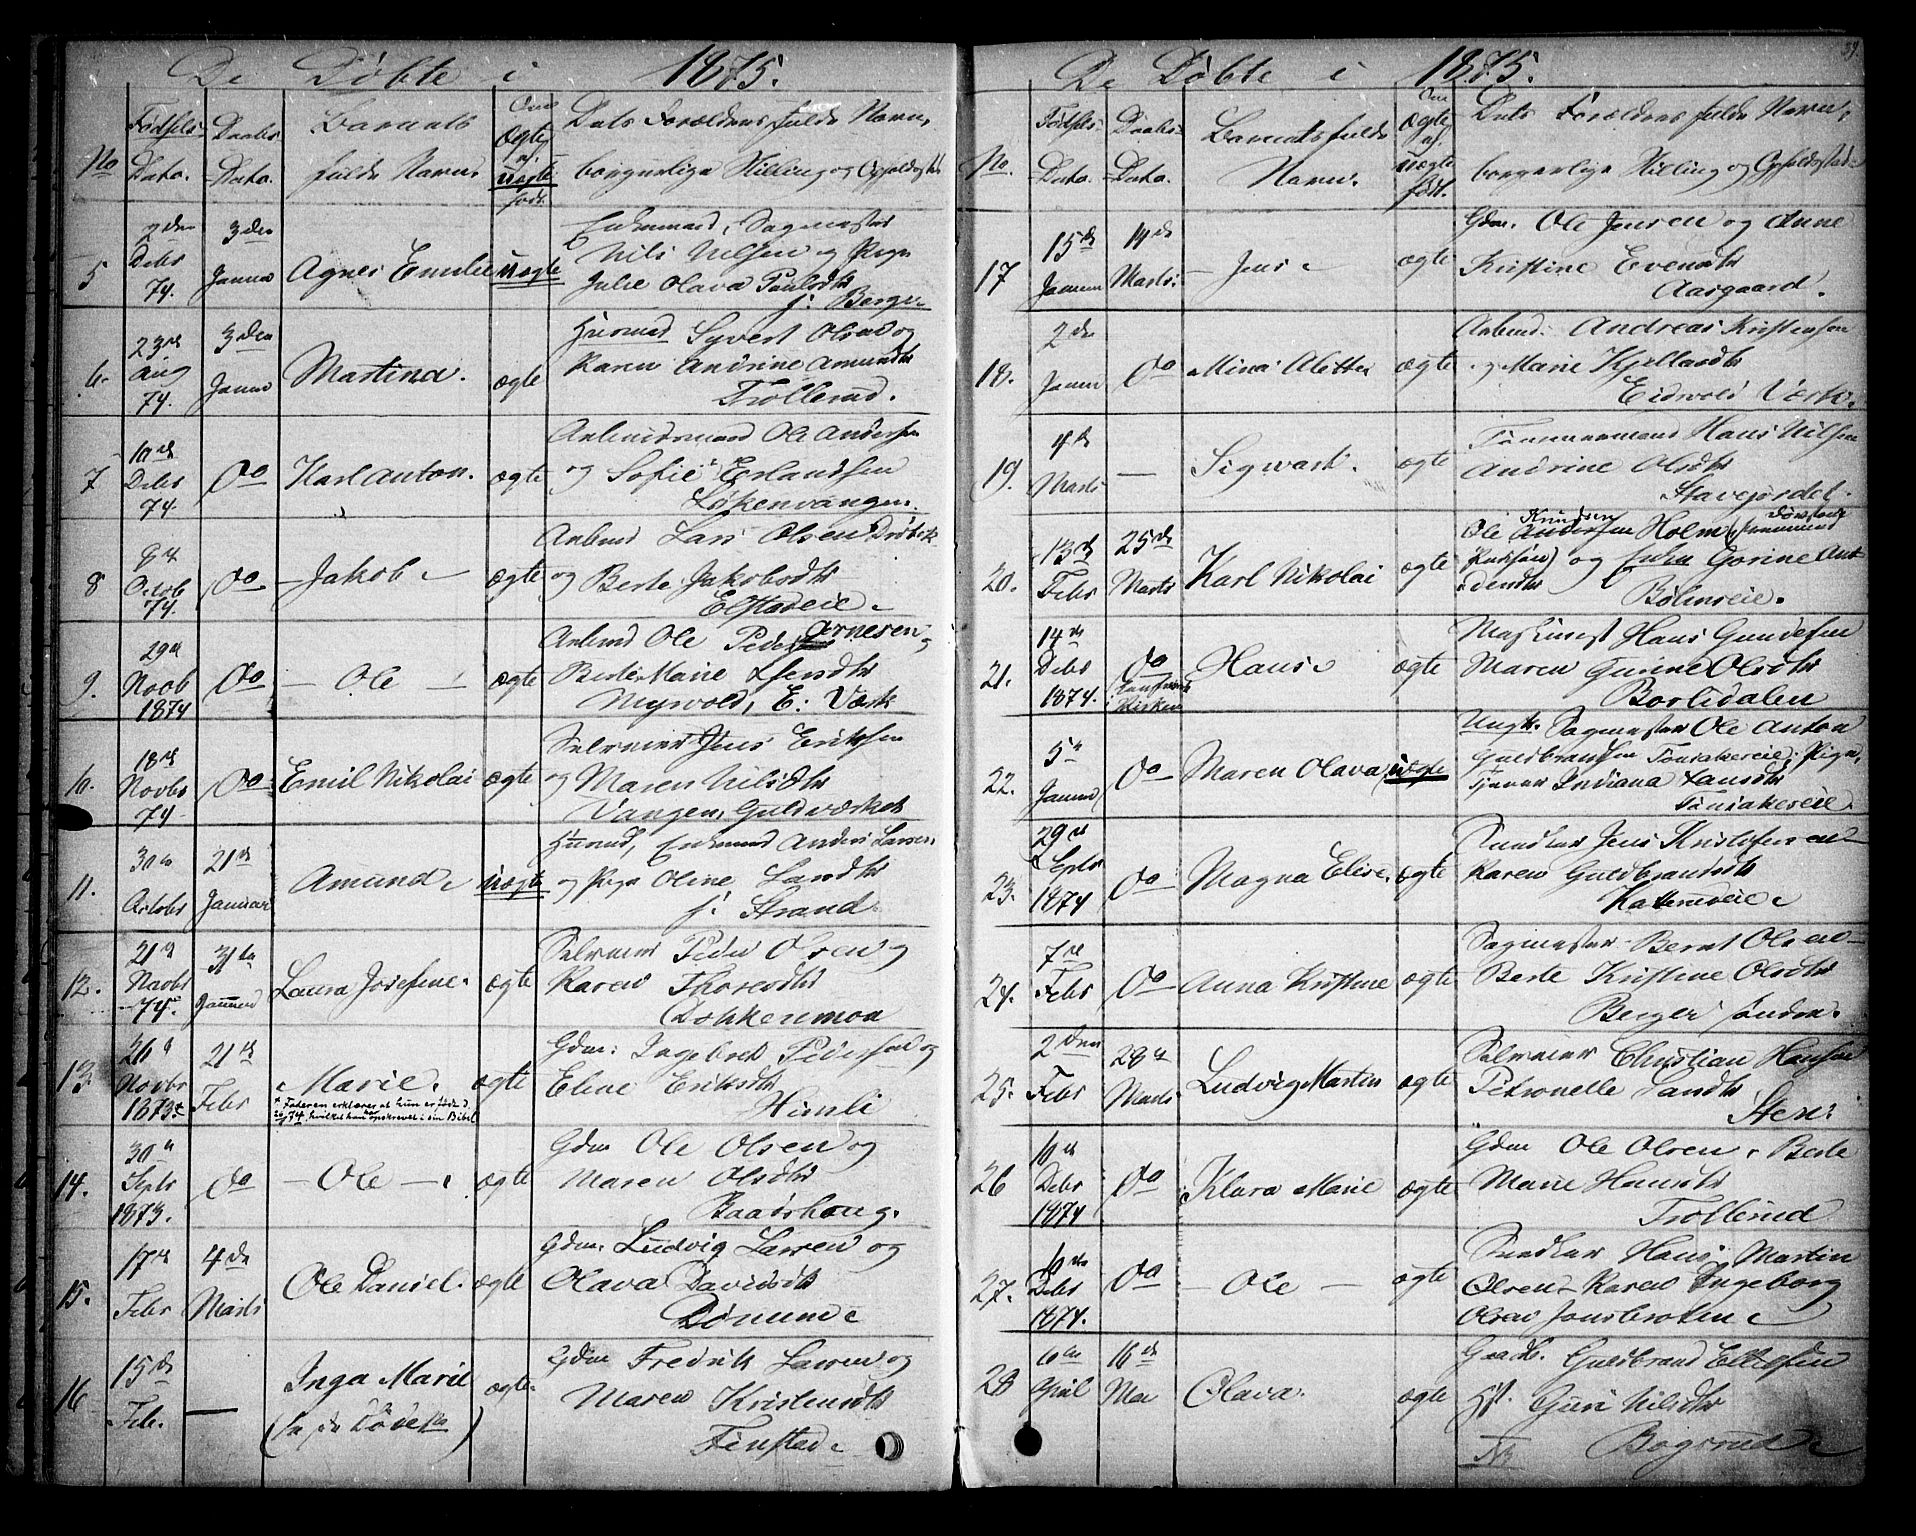 De Døbte i 1875.
No
Fødsels-
Dato.
Daabs-
Dato.
Barnets
fulde Navn.
Om
ægte
el.
uægte
født.
Dets Forældres fulde Navn,
borgerlige Stilling og Opholdssted
5
2den
Debr
74.
3den
Januar
Agnes Emilie
uægte
Enkemand, Sagmester
Nils Nilsen og Pige
Julie Olava Paulsdtr
Berger
6.
23de
Aug
74.
3den
Januar
Martina.
ægte
Huusmd Syvert Olsen og
Karen Andrine Amundsdtr
Trollerud.
7
10de
Debr
74.
Do
Karl Anton.
ægte
Arbeidsmand Ole Andersen
og Sofie Erlandsen
Løkenvangen.
8
8de
Octob
74.
Do
Jakob
ægte
Arbmd Lars Olsen
og Berte Jakobsdtr
Elstadeie
9.
29de
Novb
1874
Do
Ole
ægte
Arbmd Ole Peder Arnesen
Berte Marie
Myrvold, E. Værk
10.
18de
Novbr
74
Do
Emil Nikolai
ægte
Selveier Jens Eriksen
og Maren Nilsdtr
Vangen, Guldværket
11.
30te
Octobr
21de
Januar
Amund
uægte
Huusmd, Enkemd Anders Larsen
og Pige Oline Larsdtr
Strand
12.
21de
Novbr
74.
31te
Januar
Laura Josefine.
ægte
Selveier Peder Olsen og
Karen Thoresdtr
Dokkenmoen
13.
26de
Novbr
1873*
21de
Febr
Marie.
* Faderen erklærer at hun er føde d.
26/11 74, hvilket han har opskrevet i sin Bibel
ægte
Gdm: Ingebret Pedersen og
Eline Eriksdtr
Himli
14.
30te
Septbr
1873.
Do
Ole
ægte
Gdm Ole Olsen og
Maren Olsdtr
Baarshaug.
15.
17de
Febr
4de
Marts
Ole Daniel.
ægte
Gdm. Ludvig Larsen og
Olava Davidsdtr
Dønnum
16
15de
Feb.
—
Inga Marie
(se de Døde)
ægte
Gdm Fredrik Larsen og
Maren Kristensdtr
Finstad
De Døbte i 1875.
39
No.
Fødsels-
Dato.
Daabs-
Dato.
Barnets fulde
Navn.
Om
ægte
el.
uægte
født.
Dets Forældres fulde Navn,
borgerlige Stilling og Opholdssted
17
15de
Januar
14de
Marts.
Jens
ægte
Gdm. Ole Jensen og Anne
Kristine Evensdtr
Aasgaard.
18.
2de
Januar
Do
Mina Alette
ægte
Arbmd. Andreas Kristensen
og Marie Kjellsdtr
Eidsvold Værk.
19.
4de
Marts
—
Sigwart.
ægte
Tømmermand Hans Nilsen
Andrine Olsdtr
Stavejordet.
20.
13de
Febr
25de
Marts
Karl Nikolai
ægte
Ole Knudsen Andersen Holm
og Enken Gorine
Bølerseie.
21.
14de
Debr
1874.
Do
Hans
ægte
Maskinist Hans Gundersen
Maren Gurine Olsdtr
Borlidalen
22.
5te
Januar
Do
Maren Olava
uægte
Ungk. Sagmester Ole Anton
Guldbrandsen Tønsakereie; Pige,
Tjener Indiana Larsdtr
Tønsakereie.
23.
29de
Septbr
1874
Do
Magna Elise.
ægte
Snedker Jens Kristofersen
Karen Guldbrandsdtr
24.
7de
Febr
Do
Anna Kristine
ægte
Sagmester Bernt Olsen
Berte Kristine Olsdtr
Berger søndre.
25.
2den
Febr
28de
Marts
Ludvig Martin
ægte
Selveier Christian Hansen
Petronelle Larsdtr
Sten.
26
10de
Debr
1874
Do
Klara Marie
ægte
Gdm Ole Olsen, Berte
Marie Hansdtr
Trollerud
27.
10de
Debr
1874.
Do
Ole
ægte
Snedker Hans Martin
Olsen Karen Ingeborg
Olsen Jonsbraaten
28
10de
April
16de
Mai
Olava
ægte
Guldbrand Ellefsen
Guri Nilsdtr
Bogsrud